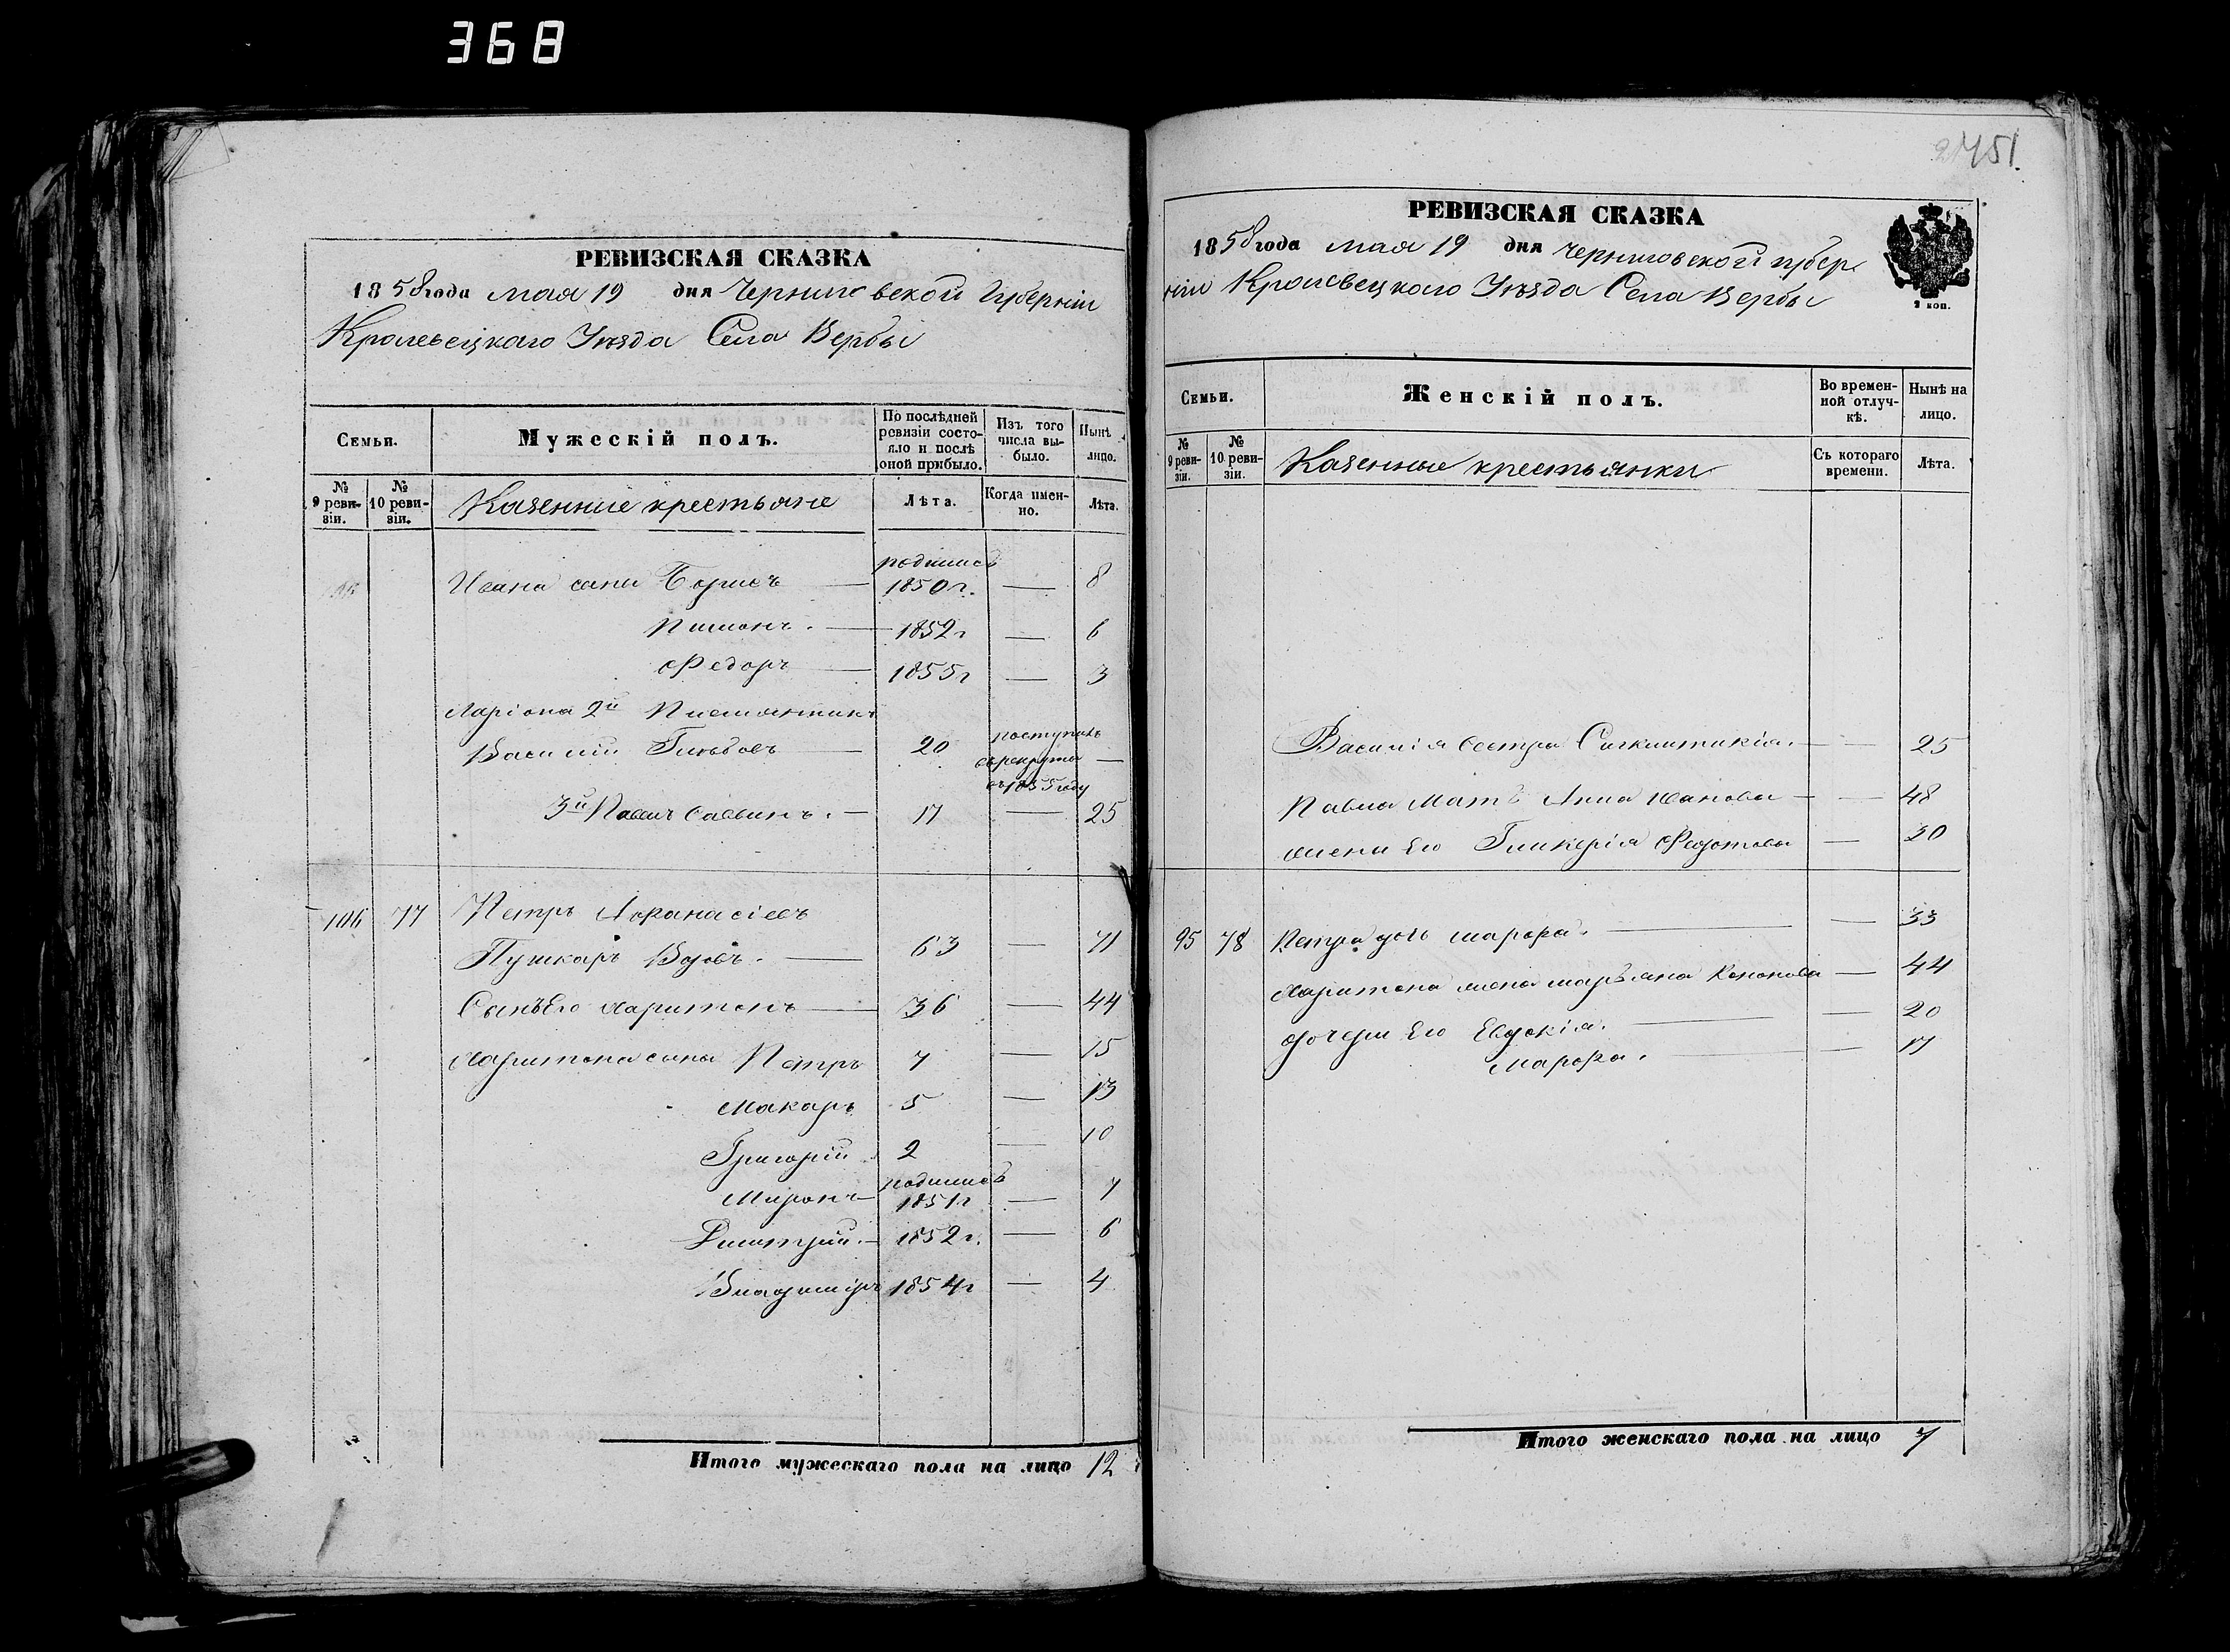 368
РЕВИЗСКАЯ СКАЗКА
1858 года мая 19 дня Черниговской Губерніи
Кролевецкаго Уѣзда Села Вербы
Семьи.
Мужескій полъ.
По послѣдней ревизіи состояло и послѣ оной прибыло.
Изъ того числа выбыло.
Нынѣ лицо.
№ 9 ревизіи.
№ 10 ревизіи.
Казенные крестьяне
Лѣта.
Когда именно.
Лѣта.
родились
Ивана сыны Борисъ — 1850 г. — 8
Пименъ. — 1852 г — 6
Федоръ — 1855 г — 3
Ларіона 2й
Василій — 20 поступилъ
въ рекруты —
въ 1855 году
3й Павелъ Саввинъ. — 17 — 25
106 77 Петръ Афанасіевъ
Пушкарь Вдовъ. — 63 — 71
Сынъ Его Харитонъ — 36 — 44
Харитона сыны Петръ 7 — 15
Макаръ 5 — 13
Григорій 2 — 10
родились
Миронъ — 1851 г — 7
Дмитрій. — 1852 г. — 6
Владиміръ 1854 г — 4
Итого мужескаго пола на лицо 12
2751.
РЕВИЗСКАЯ СКАЗКА
1858 года мая 19 дня Черниговской губер
ніи Кролевецкаго Уѣзда Села Вербы
2 коп.
Семьи.
Женскій полъ.
Во временной отлучкѣ.
Нынѣ на лицо.
№ 9 ревизіи.
№ 10 ревизіи.
Казенные крестьянки
Съ котораго времени.
Лѣта.
Василія Сестра — — 25
Павла Мать Анна Иванова — — 48
жена Его Гликерія Федотова — 30
95 78 Петра дочь Марфа. — — 33
Харитона жена Марьяна Кононова — 44
дочери Его Евдокія. — — 20
Марфа. — — 17
Итого женскаго пола на лицо 7